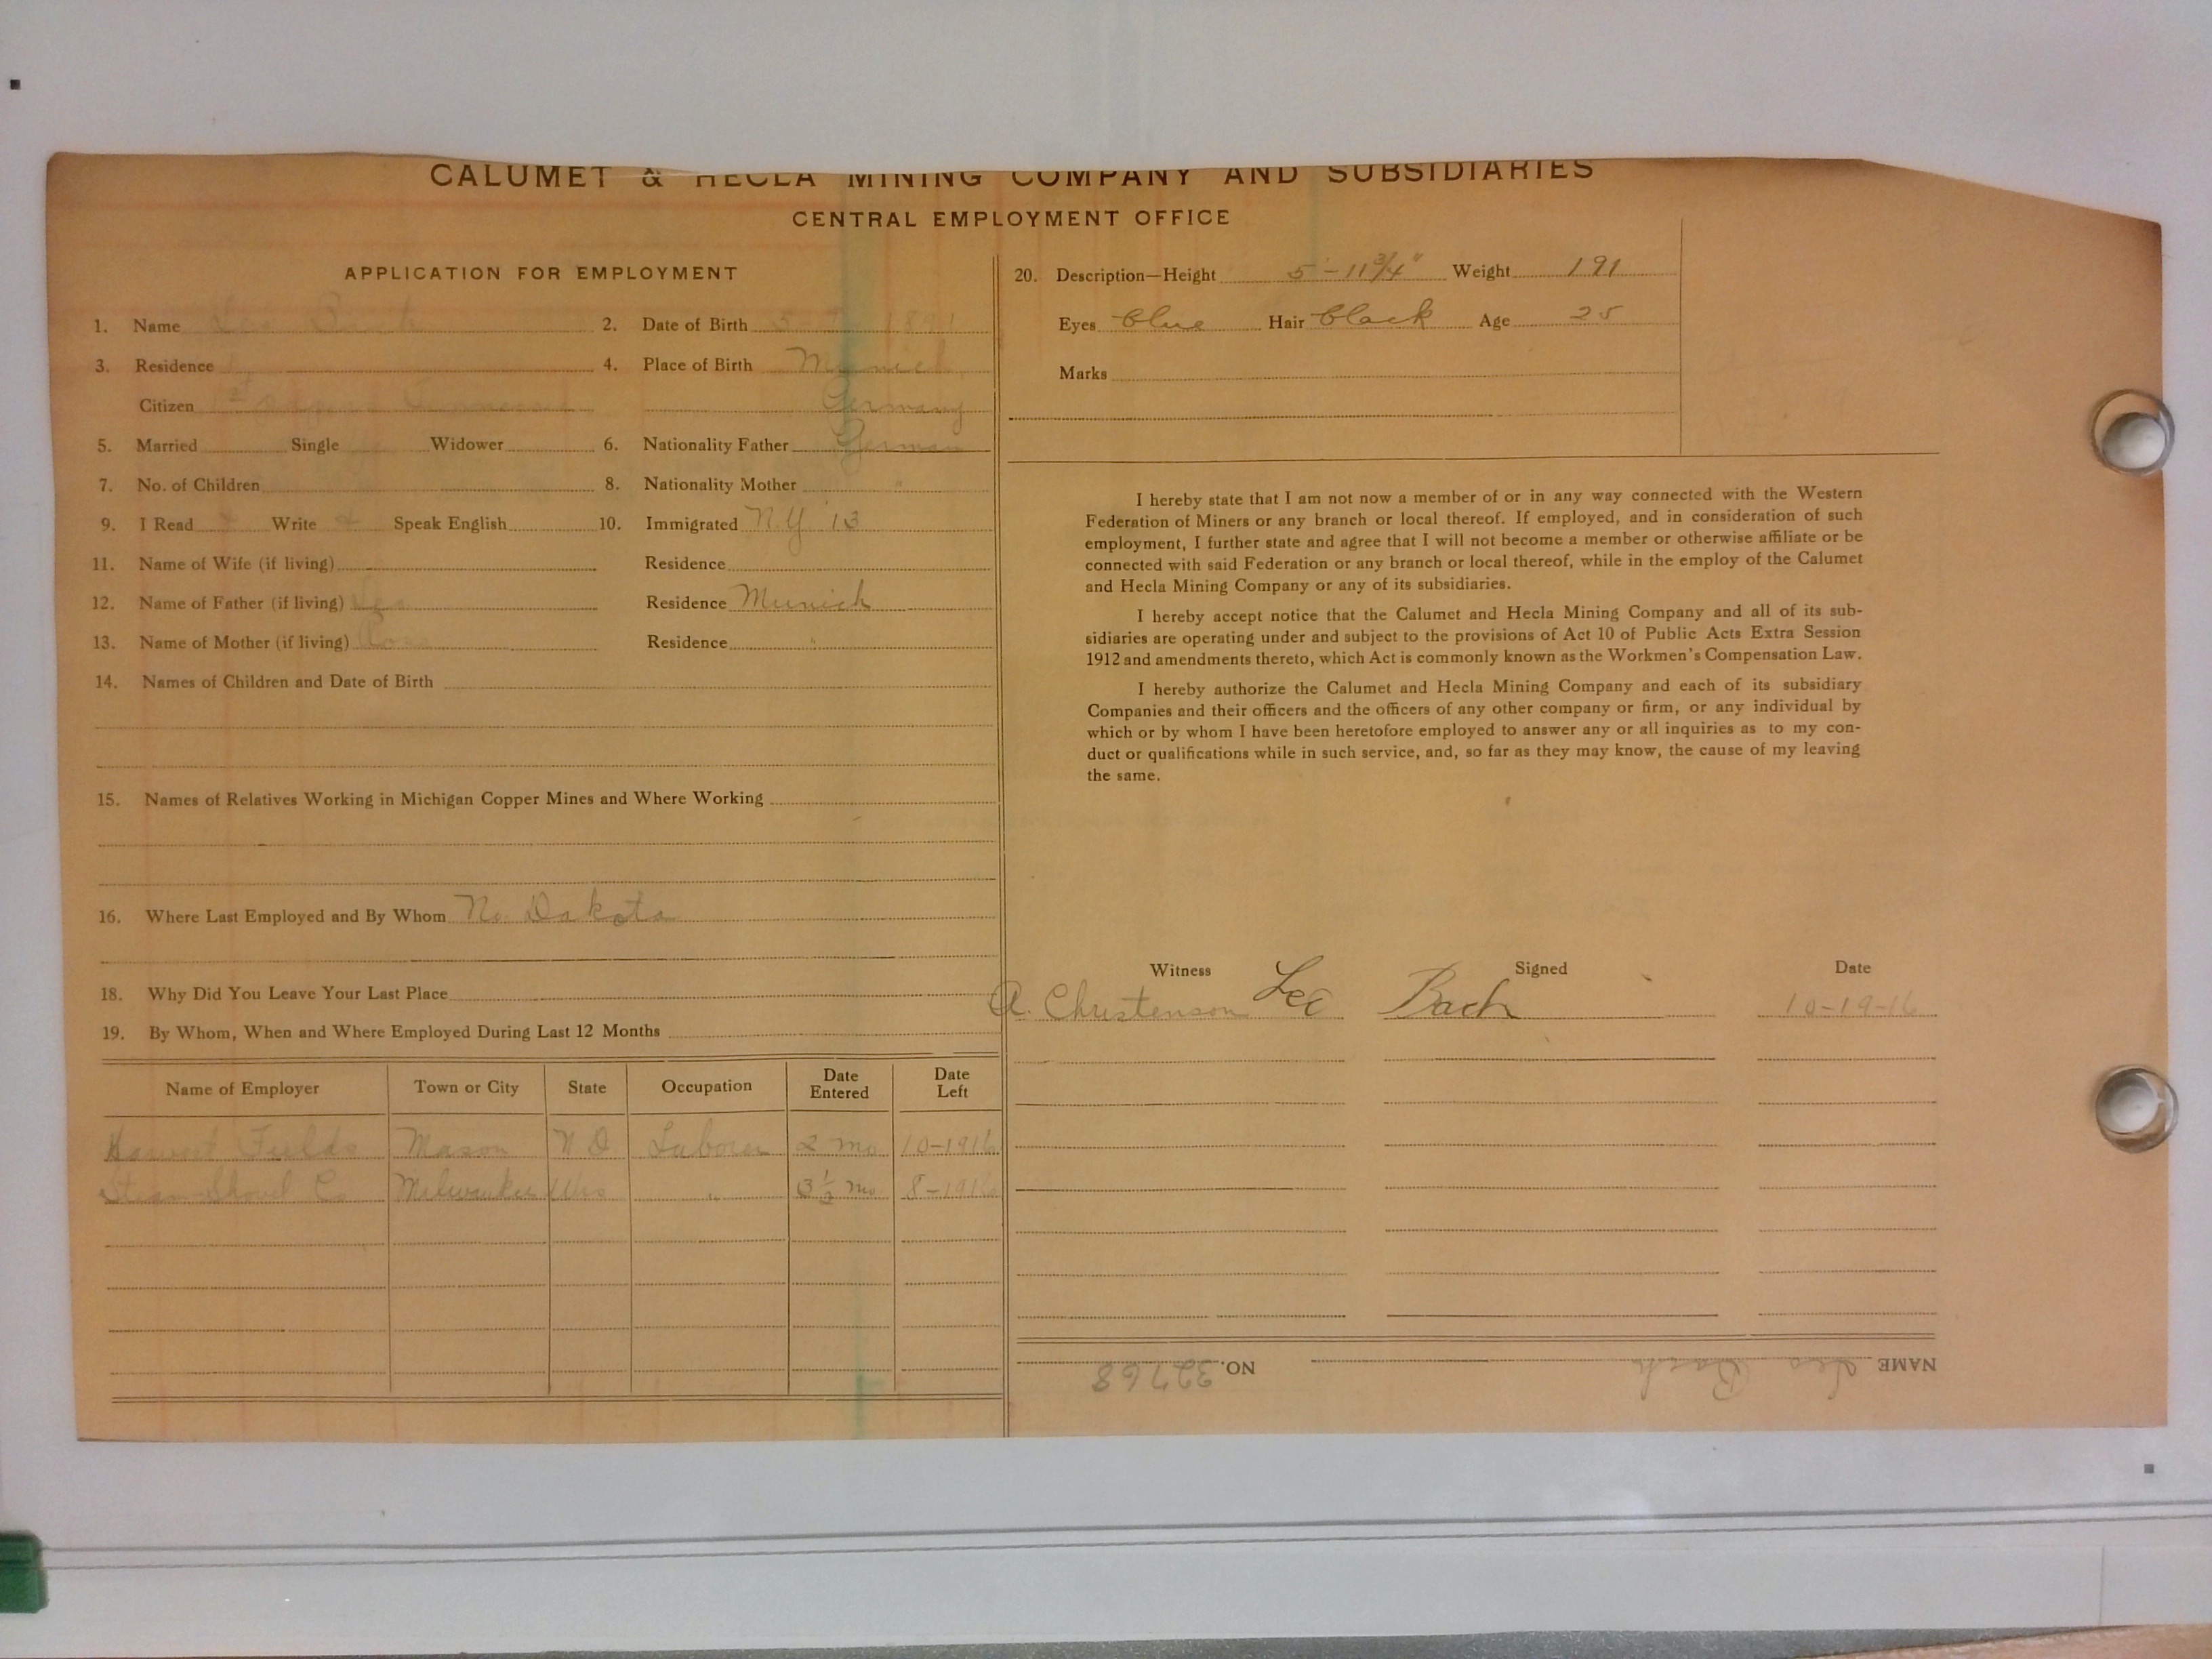 CALUMET & HECLA MINING COMPANY AND SUBSIDIARIES
CENTRAL EMPLOYMENT OFFICE
APPLICATION FOR EMPLOYMENT
1. Name Leo Bach 2. Date of Birth 1891
3. Residence 4. Place of Birth Munich,
Citizen 1st papers Germany
5. Married Single Widower 6. Nationality Father German
7. No. of Children 8. Nationality Mother "
9. I Read Write Speak English 10. Immigrated N.Y '13
11. Name of Wife (if living) Residence
12. Name of Father (if living) Leo Residence Munich
13. Name of Mother (if living) Residence "
14. Names of Children and Date of Birth
15. Names of Relatives Working in Michigan Copper Mines and Where Working
16. Where Last Employed and By Whom No. Dakota
18. Why Did You Leave Your Last Place
19. By Whom, When and Where Employed During Last 12 Months
Name of Employer Town or City State Occupation Date Entered Date Left
Harvest Fields Mason N D Laborer 2 mo 10-1916
Steam Shovel Co Milwaukee Wis " 3 1/2 mo 8-1916
20. Description—Height 5'-11 3/4" Weight 191
Eyes blue Hair black Age 25
Marks
I hereby state that I am not now a member of or in any way connected with the Western
Federation of Miners or any branch or local thereof. If employed, and in consideration of such
employment, I further state and agree that I will not become a member or otherwise affiliate or be
connected with said Federation or any branch or local thereof, while in the employ of the Calumet
and Hecla Mining Company or any of its subsidiaries.
I hereby accept notice that the Calumet and Hecla Mining Company and all of its sub-
sidiaries are operating under and subject to the provisions of Act 10 of Public Acts Extra Session
1912 and amendments thereto, which Act is commonly known as the Workmen's Compensation Law.
I hereby authorize the Calumet and Hecla Mining Company and each of its subsidiary
Companies and their officers and the officers of any other company or firm, or any individual by
which or by whom I have been heretofore employed to answer any or all inquiries as to my con-
duct or qualifications while in such service, and, so far as they may know, the cause of my leaving
the same.
Witness Signed Date
A. Christenson Leo Bach 10-19-16
NAME Leo Bach NO. 32768